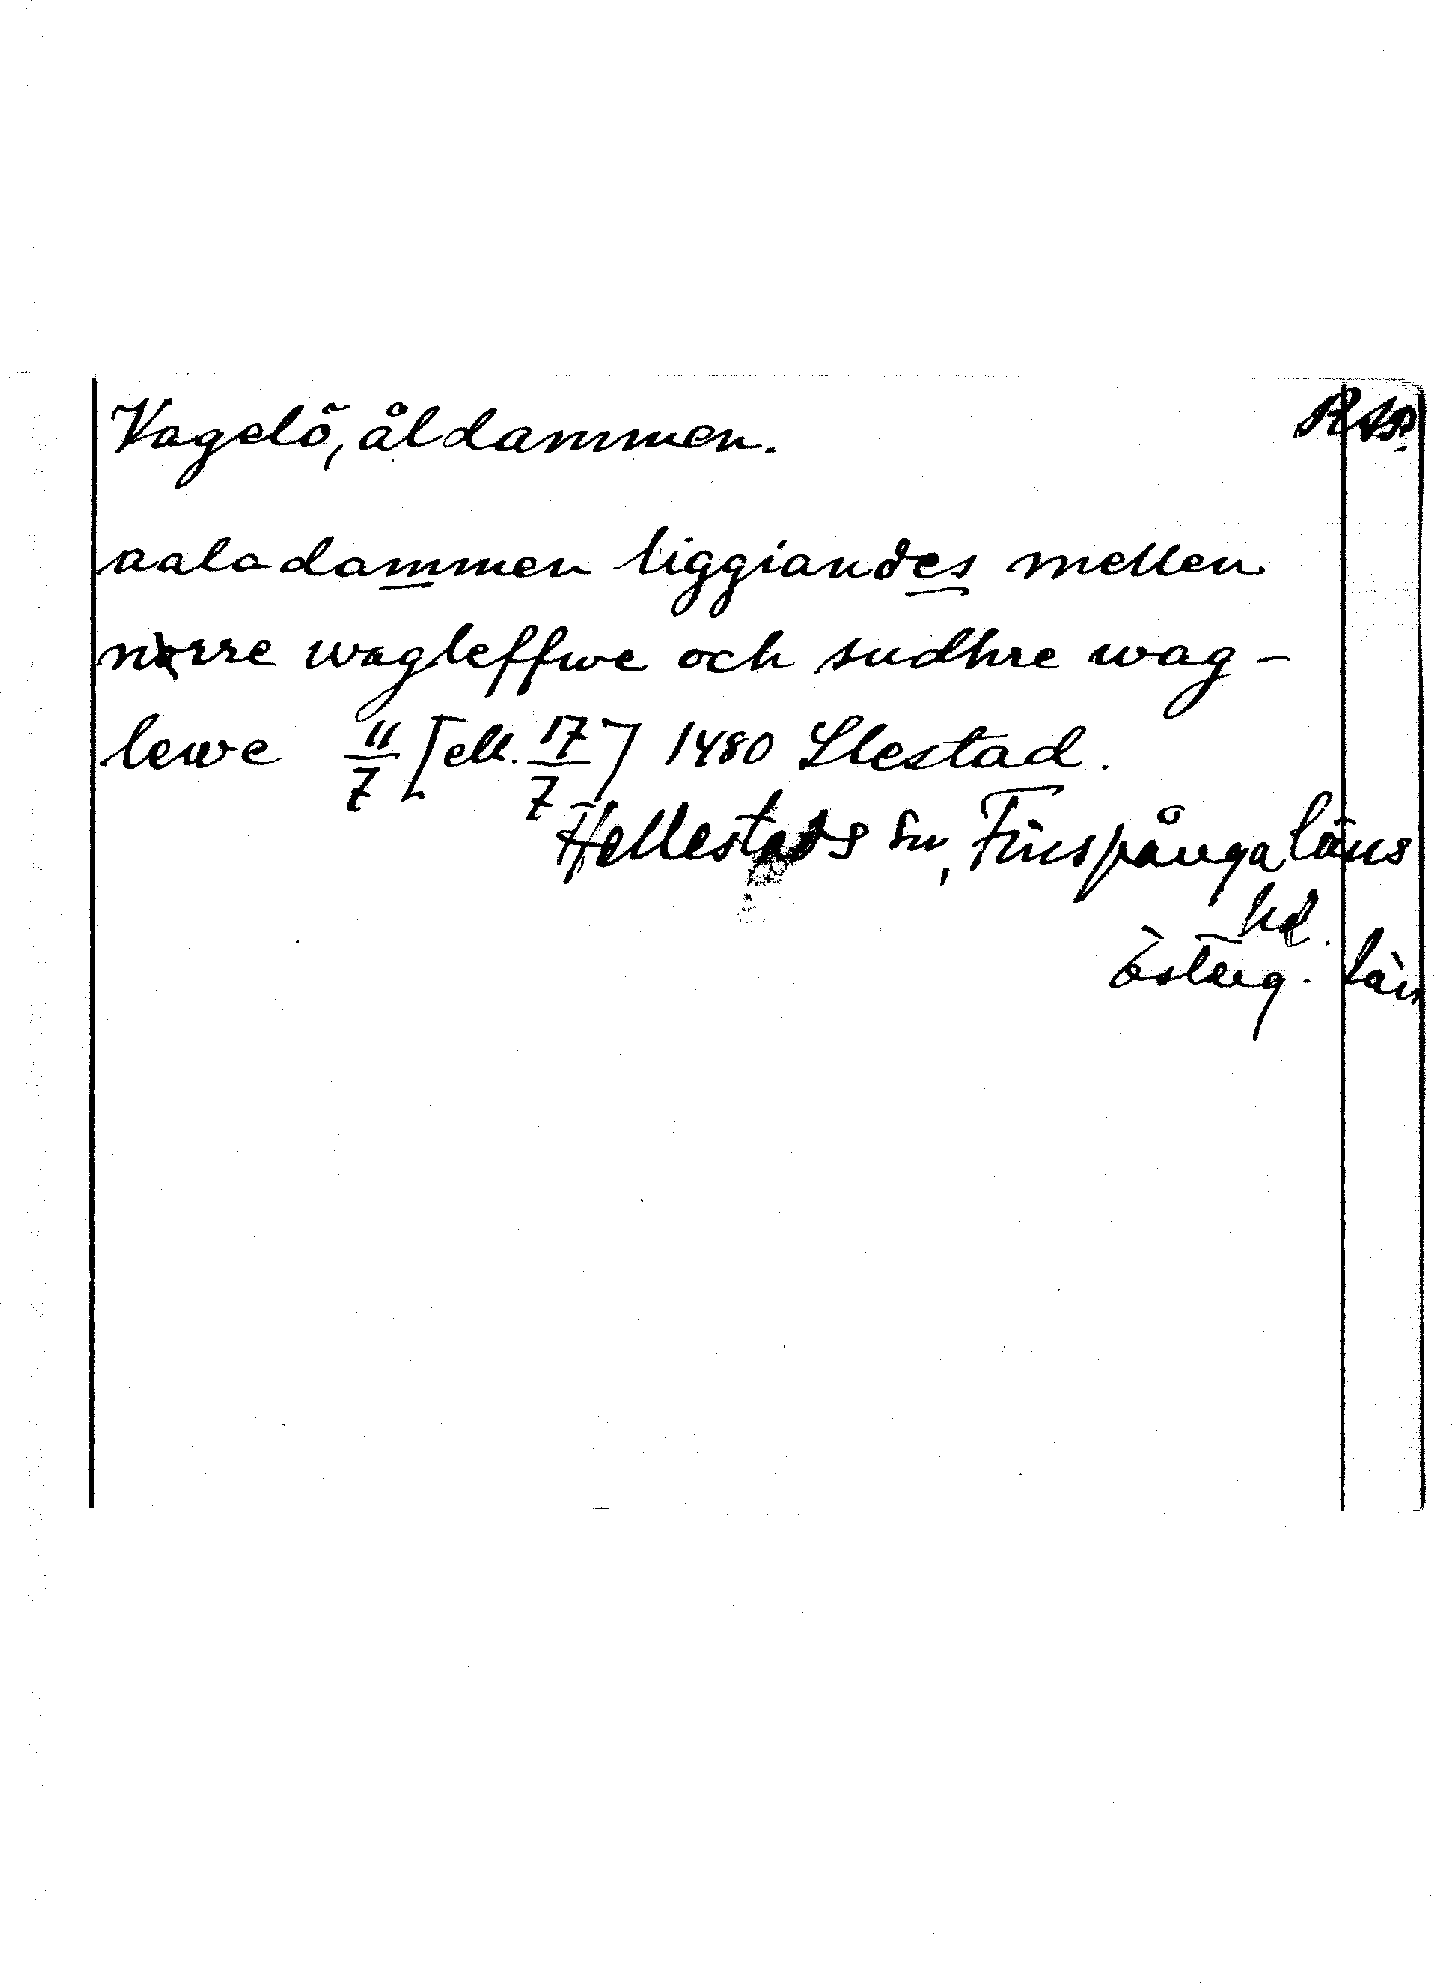 Vagelö, åldammen. RAP.
aaladammen liggiandes mellen
nørre wagleffwe och sudhre wag-
lewe 11/7 [ell. 17/7] 1480 Slestad.
Hellestads sn, Finspånga läns
hd.
Österg. län